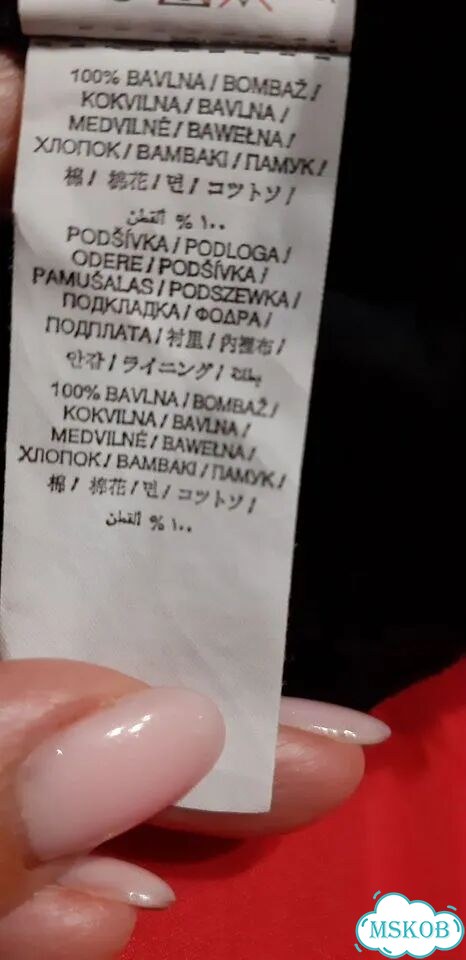 100% BAVLNA / BOMBAŽ /
KOKVILNA / BAVLNA /
MEDVILNĖ / BAWEŁNA /
ХЛОПОК / BAMBAKI / ПАМУК /
棉 / 棉花 / 면 / コットソ /
١٠٠ % القطن
PODŠÍVKA / PODLOGA /
ODERE / PODŠÍVKA /
PAMUŠALAS / PODSZEWKA /
ПОДКЛАДКА / ΦΟΔΡΑ /
ПОДПЛАТА / 衬里 / 內裡布 /
안감 / ライニング / بطانة
100% BAVLNA / BOMBAŽ /
KOKVILNA / BAVLNA /
MEDVILNĖ / BAWEŁNA /
ХЛОПОК / BAMBAKI / ПАМУК /
棉 / 棉花 / 면 / コットソ /
١٠٠ % القطن
MSKOB